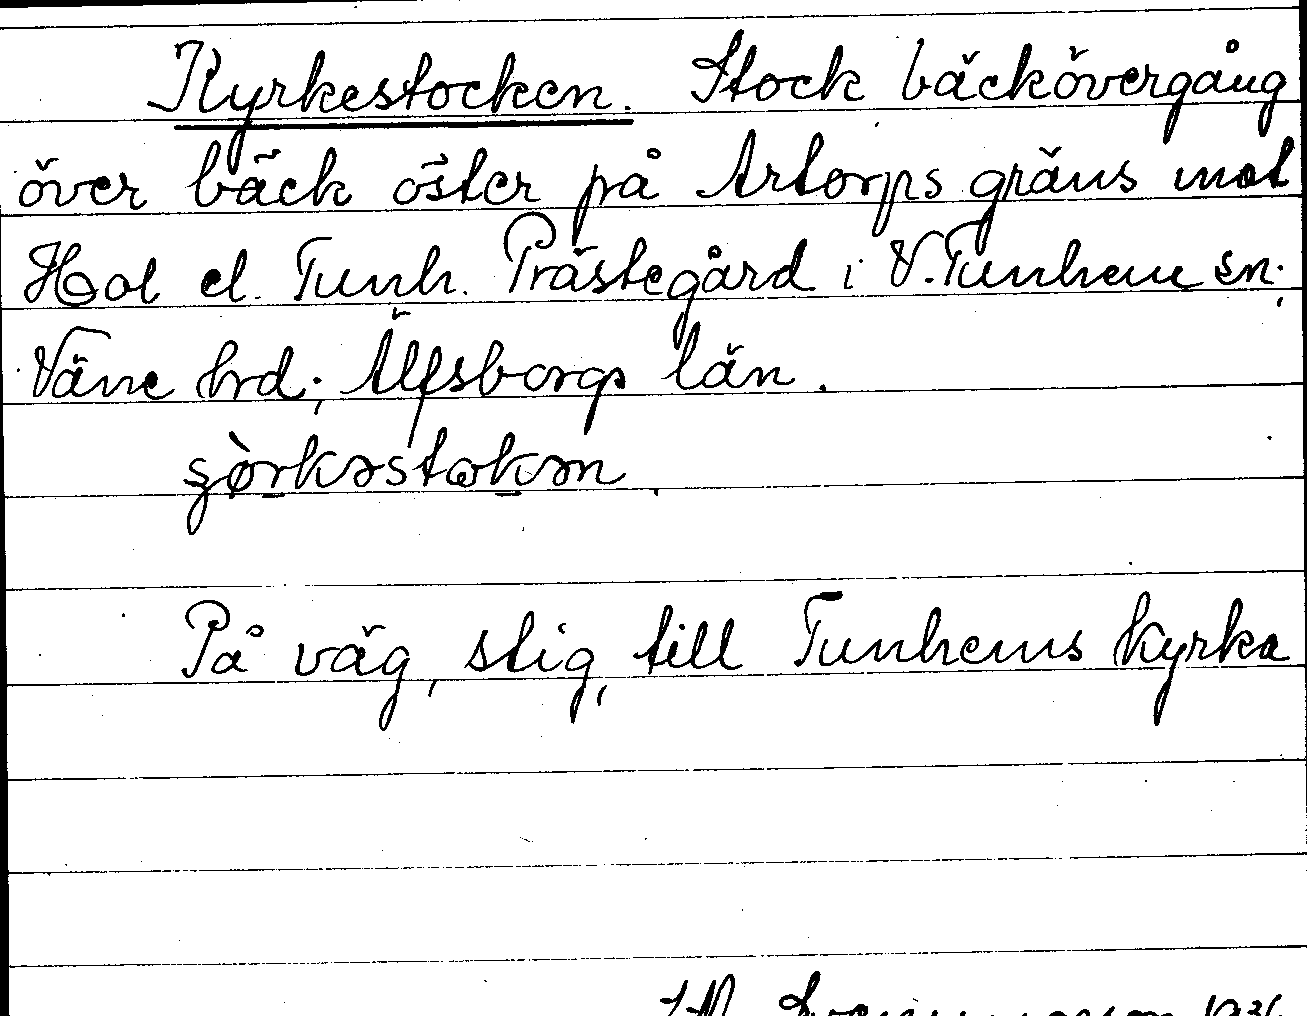 Kyrkestocken. Stock bäckövergång
över bäck öster på Artorps gräns mot
Hol el. Tunh. Prästegård i V. Tunhem sn.
Väne hrd; Älfsborgs län.
På väg, stig, till Tunhems kyrka